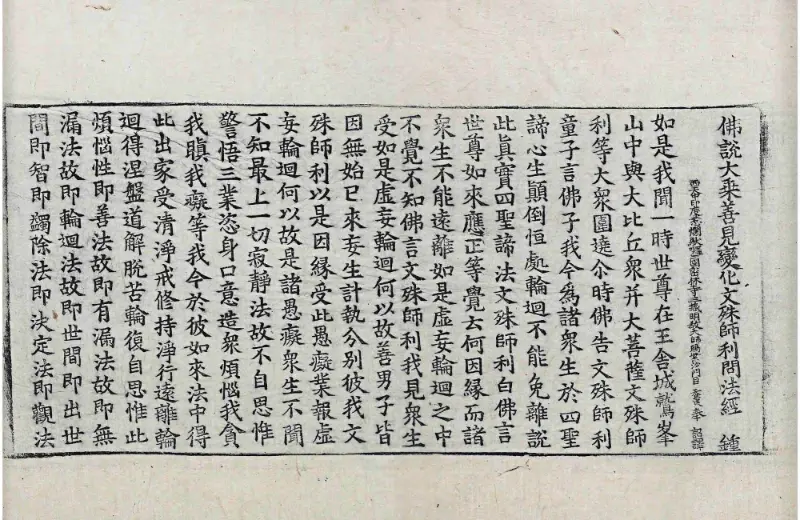 佛說大乘善見變化文殊師利問法經 鍾
如是我聞一時世尊在王舍城鷲峯
山中與大比丘衆并大菩薩文殊師
利等大衆圍遶尒時佛告文殊師利
童子言佛子我今爲諸衆生於四聖
諦心生顛倒恒處輪迴不能免離說
此真實四聖諦法文殊師利白佛言
世尊如來應正等覺云何因緣而諸
衆生不能遠離如是虛妄輪迴之中
不覺不知佛言文殊師利我見衆生
受如是虛妄輪迴何以故善男子皆
因無始已來妄生計執分別彼我文
殊師利以是因緣受此愚癡業報虛
妄輪迴何以故是諸愚癡衆生不聞
不知最上一切寂靜法故不自思惟
警悟三業恣身口意造衆煩惱我貪
我瞋我癡等我今於彼如來法中得
此出家受清淨戒修持淨行遠離輪
迴得涅盤道解脫苦輪復自思惟此
煩惱性即善法故即有漏法故即無
漏法故即輪迴法故即世間即出世
間即智即蠲除法即決定法即觀法